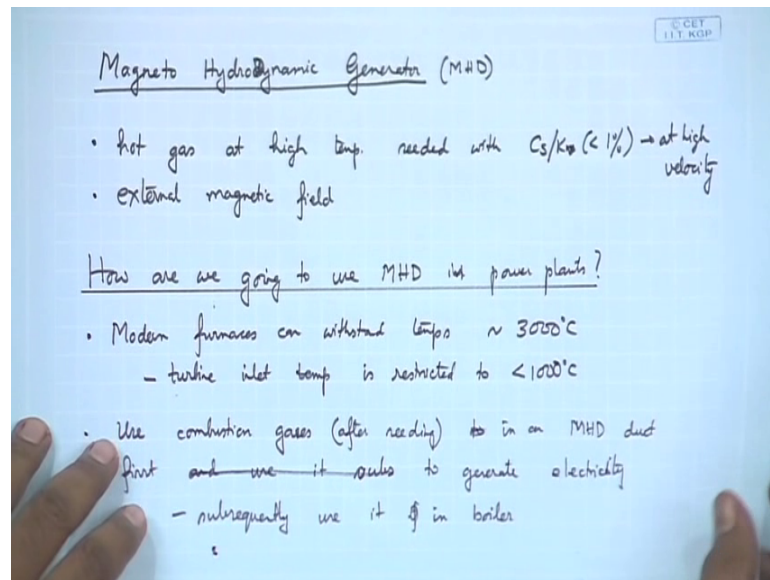 © CET
I.I.T. KGP
Magneto HydroDynamic Generator (MHD)
• hot gas at high temp. needed with Cs/K (< 1%) → at high
velocity
• external magnetic field
How are we going to use MHD in power plants?
• Modern furnaces can withstand temps ~ 3000°C
– turbine inlet temp is restricted to < 1000°C
• Use combustion gases (after seeding) in an MHD duct
first and use it to generate electricity
– subsequently use it in boiler